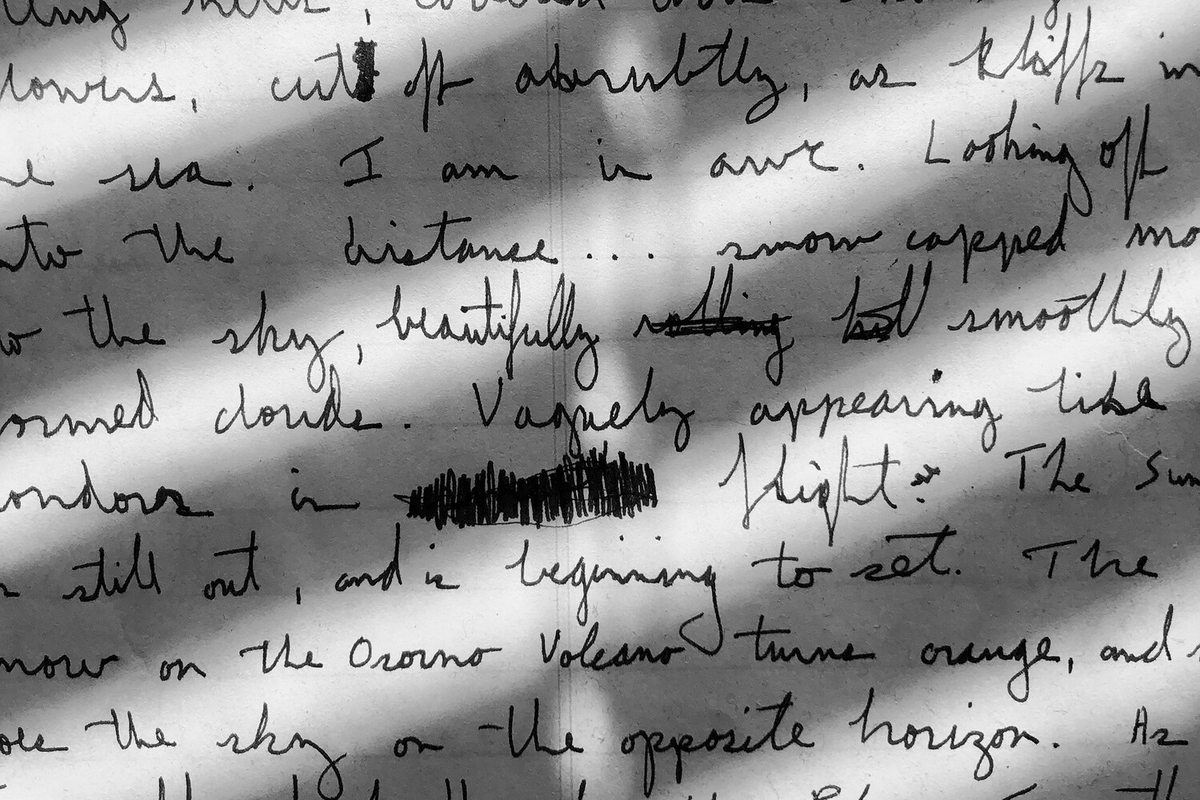 lowers, cut off abrubtly, as kliffs in
sea. I am in awe. Looking off
the distance... snow capped mo
the sky, beautifully smoothly
ormed clouds. Vaguely appearing like
ondors in flight. The Sun
still out, and is beginning to set. The
now on the Osorno Volcano turns orange, and
oes the sky on the opposite horizon. As